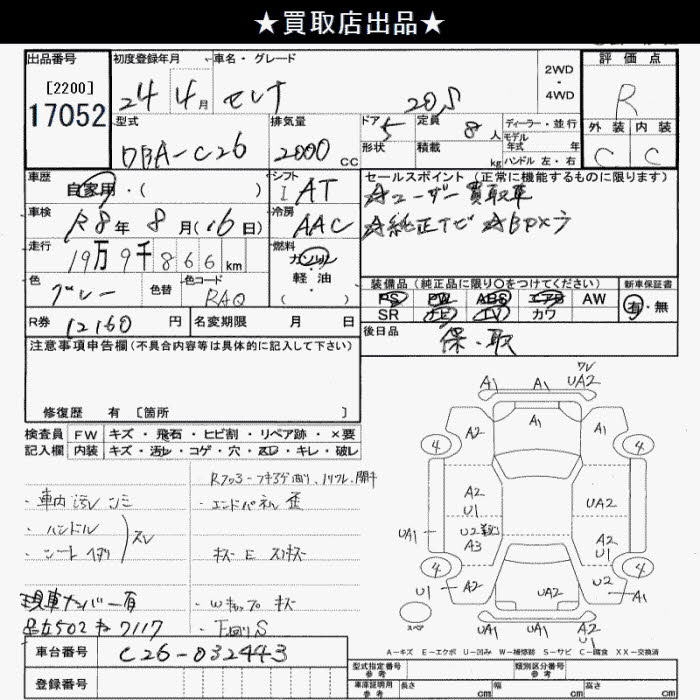 ★買取店出品★
出品番号 初度登録年月 車名・グレード 2WD・4WD 評価点
[2200] 17052 24年 4月 セレナ 20S R
型式 排気量 ドア 5 定員 8人 ディーラー・並行
DBA-C26 2000cc 形状 積載 kg モデル年式 年 ハンドル 左・右
外装 内装
C C
車歴 自家用・( ) シフト I AT
セールスポイント (正常に機能するものに限ります)
☆ユーザー買取車
☆純正ナビ ☆Bカメラ
車検 R8年 8月(16日) 冷房 AAC
走行 19万9千866km 燃料 ガソリン 軽・油 ( )
色 グレー 色替 色コード RAQ
装備品 (純正品に限り○をつけてください) 新車保証書
PS PW ABS エアB AW 有・無
SR ナビ TV カワ
R券 12160円 名変期限 月 日
後日品 保・取
注意事項申告欄 (不具合内容等は具体的に記入して下さい)
修復歴 有 [箇所 ]
検査員 FW キズ・飛石・ヒビ割・リペア跡・×要
記入欄 内装 キズ・汚レ・コゲ・穴・スレ・キレ・破レ
・車内 汚レ シミ
・エンドパネル 歪
・ハンドル
・シート スレ
現車ナンバー有
・Wキャップ キズ
・下回りS
車台番号 C26-032443
登録番号
ワレ
A1 A1 UA2
A2 A1 A1
4 4
A2 U1 UA2
UA1 U2 A3 A2 U1
4 4
U1 A2 UA2 U2 A1
スペア UA1 UA1 A2 U1
A-キズ E-エクボ U-凹み W-補修跡 S-サビ C-腐食 XX-交換済
型式指定番号 参考 類別区分番号 参考
車庫証明用 参考 長さ cm 幅 cm 高さ cm